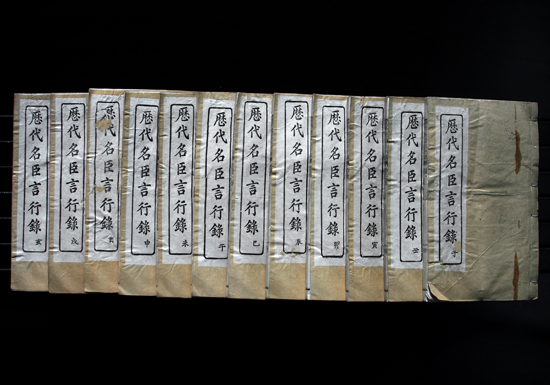 厯代名臣言行錄 子
厯代名臣言行錄 丑
厯代名臣言行錄 寅
厯代名臣言行錄 卯
厯代名臣言行錄 辰
厯代名臣言行錄 巳
厯代名臣言行錄 午
厯代名臣言行錄 未
厯代名臣言行錄 申
厯代名臣言行錄
厯代名臣言行錄 戌
厯代名臣言行錄 亥